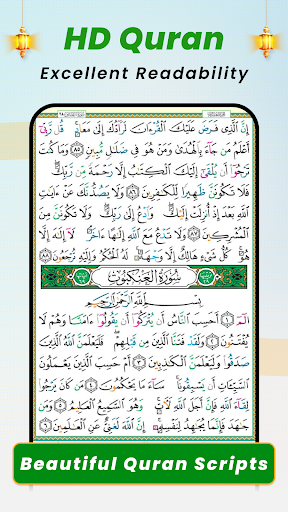 HD Quran
Excellent Readability
إِنَّ الَّذِي فَرَضَ عَلَيْكَ الْقُرْءَانَ لَرَآدُّكَ إِلَىٰ مَعَادٍ ۚ قُل رَّبِّي
أَعْلَمُ مَن جَآءَ بِالْهُدَىٰ وَمَنْ هُوَ فِي ضَلَٰلٍ مُّبِينٍ ٨٥ وَمَا كُنتَ
تَرْجُوٓا۟ أَن يُلْقَىٰٓ إِلَيْكَ الْكِتَٰبُ إِلَّا رَحْمَةً مِّن رَّبِّكَ ۖ
فَلَا تَكُونَنَّ ظَهِيرًا لِّلْكَٰفِرِينَ ٨٦ وَلَا يَصُدُّنَّكَ عَنْ ءَايَٰتِ
اللَّهِ بَعْدَ إِذْ أُنزِلَتْ إِلَيْكَ ۖ وَادْعُ إِلَىٰ رَبِّكَ ۖ وَلَا تَكُونَنَّ مِنَ
الْمُشْرِكِينَ ٨٧ وَلَا تَدْعُ مَعَ اللَّهِ إِلَٰهًا ءَاخَرَ ۘ لَآ إِلَٰهَ إِلَّا
هُوَ ۚ كُلُّ شَيْءٍ هَالِكٌ إِلَّا وَجْهَهُۥ ۚ لَهُ الْحُكْمُ وَإِلَيْهِ تُرْجَعُونَ ٨٨
سُورَةُ الْعَنكَبُوتِ
بِسْمِ اللَّهِ الرَّحْمَٰنِ الرَّحِيمِ
الٓمٓ ١ أَحَسِبَ النَّاسُ أَن يُتْرَكُوٓا۟ أَن يَقُولُوٓا۟ ءَامَنَّا وَهُمْ لَا
يُفْتَنُونَ ٢ وَلَقَدْ فَتَنَّا الَّذِينَ مِن قَبْلِهِمْ ۖ فَلَيَعْلَمَنَّ اللَّهُ الَّذِينَ
صَدَقُوا۟ وَلَيَعْلَمَنَّ الْكَٰذِبِينَ ٣ أَمْ حَسِبَ الَّذِينَ يَعْمَلُونَ
السَّيِّـَٔاتِ أَن يَسْبِقُونَا ۚ سَآءَ مَا يَحْكُمُونَ ٤ مَن كَانَ يَرْجُوا۟
لِقَآءَ اللَّهِ فَإِنَّ أَجَلَ اللَّهِ لَآتٍ ۚ وَهُوَ السَّمِيعُ الْعَلِيمُ ٥ وَمَن
جَٰهَدَ فَإِنَّمَا يُجَٰهِدُ لِنَفْسِهِۦٓ ۚ إِنَّ اللَّهَ لَغَنِيٌّ عَنِ الْعَٰلَمِينَ ٦
Beautiful Quran Scripts